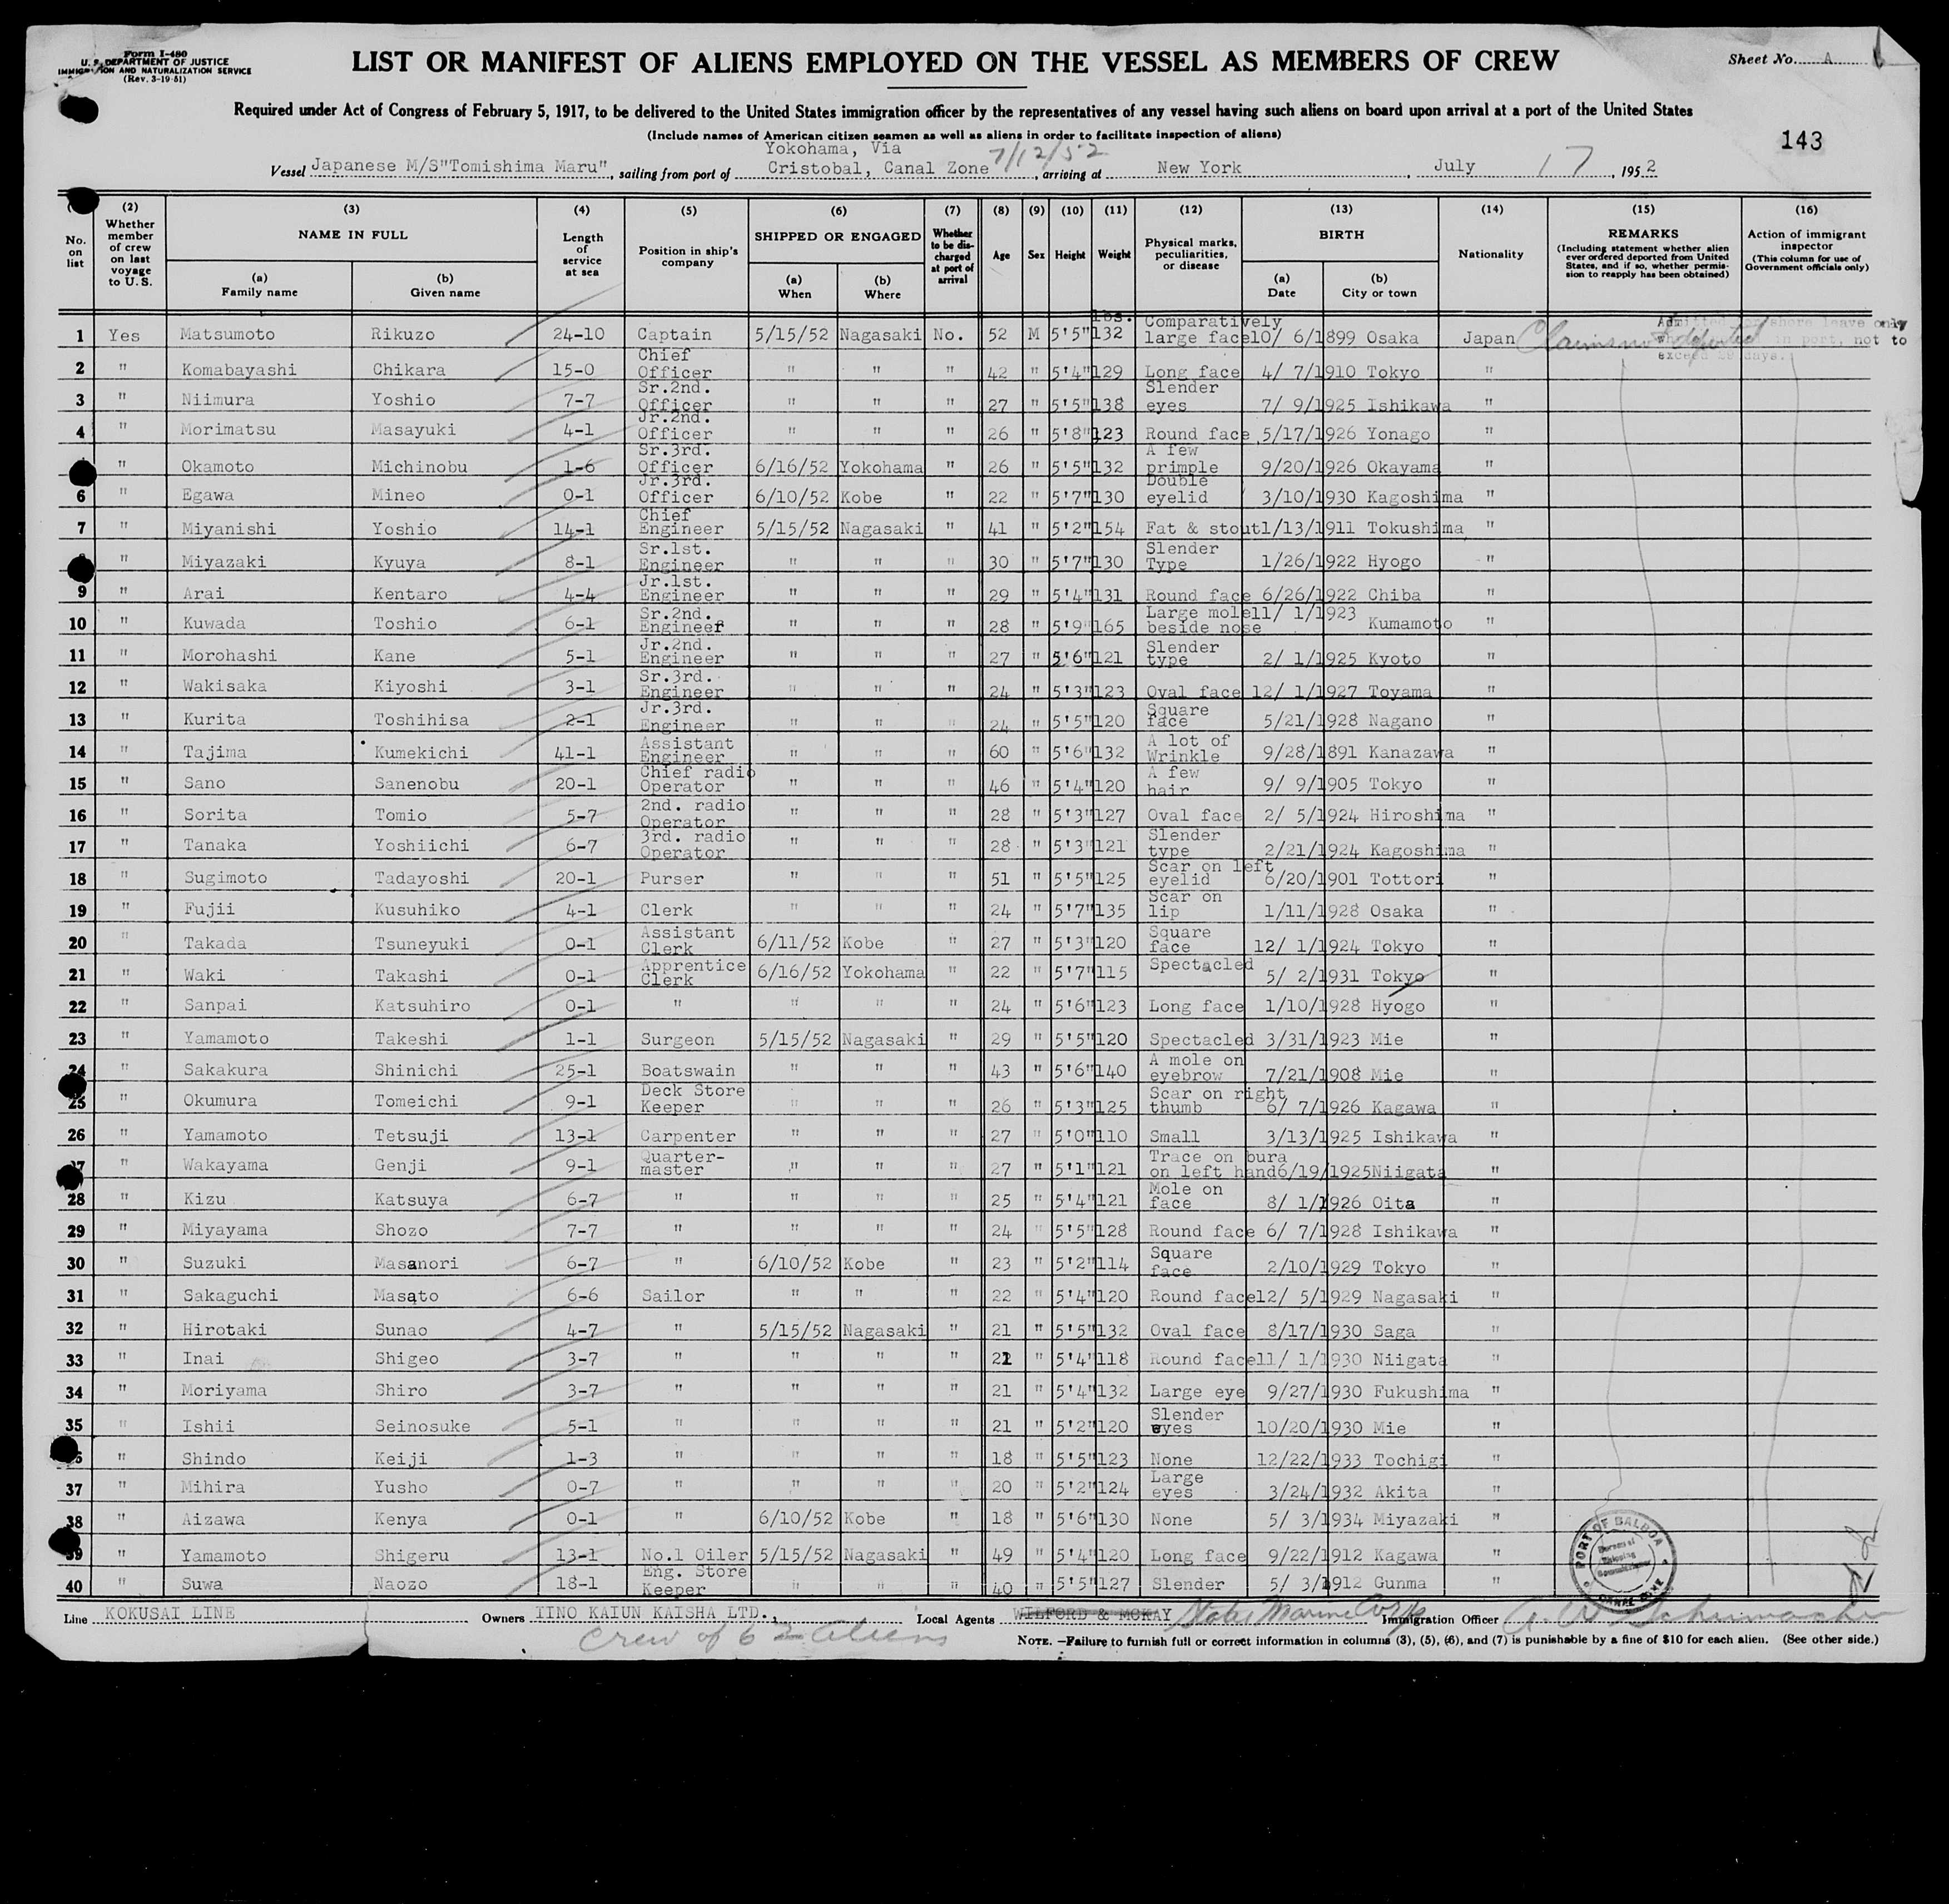 Form I-480
U. S. DEPARTMENT OF JUSTICE
IMMIGRATION AND NATURALIZATION SERVICE
(Rev. 3-19-51)
LIST OR MANIFEST OF ALIENS EMPLOYED ON THE VESSEL AS MEMBERS OF CREW
Sheet No. A
Required under Act of Congress of February 5, 1917, to be delivered to the United States immigration officer by the representatives of any vessel having such aliens on board upon arrival at a port of the United States
(Include names of American citizen seamen as well as aliens in order to facilitate inspection of aliens)
143
Yokohama, Via
Vessel Japanese M/S"Tomishima Maru", sailing from port of Cristobal, Canal Zone 7/12/52, arriving at New York, July 17, 1952
(2) (3) (4) (5) (6) (7) (8) (9) (10) (11) (12) (13) (14) (15) (16)
No. on list
Whether member of crew on last voyage to U. S.
NAME IN FULL
(a) Family name
(b) Given name
Length of service at sea
Position in ship's company
SHIPPED OR ENGAGED
(a) When
(b) Where
Whether to be discharged at port of arrival
Age
Sex
Height
Weight
Physical marks, peculiarities, or disease
BIRTH
(a) Date
(b) City or town
Nationality
REMARKS
(Including statement whether alien ever ordered deported from United States, and if so, whether permission to reapply has been obtained)
Action of immigrant inspector
(This column for use of Government officials only)
lbs.
1 Yes Matsumoto Rikuzo 24-10 Captain 5/15/52 Nagasaki No. 52 M 5'5" 132 Comparatively large face 10/ 6/1899 Osaka Japan
exceed 29 days.
2 " Komabayashi Chikara 15-0 Chief Officer " " " 42 " 5'4" 129 Long face 4/ 7/1910 Tokyo "
3 " Niimura Yoshio 7-7 Sr.2nd. Officer " " " 27 " 5'5" 138 Slender eyes 7/ 9/1925 Ishikawa "
4 " Morimatsu Masayuki 4-1 Jr.2nd. Officer " " " 26 " 5'8" 123 Round face 5/17/1926 Yonago "
" Okamoto Michinobu 1-6 Sr.3rd. Officer 6/16/52 Yokohama " 26 " 5'5" 132 A few primple 9/20/1926 Okayama "
6 " Egawa Mineo 0-1 Jr.3rd. Officer 6/10/52 Kobe " 22 " 5'7" 130 Double eyelid 3/10/1930 Kagoshima "
7 " Miyanishi Yoshio 14-1 Chief Engineer 5/15/52 Nagasaki " 41 " 5'2" 154 Fat & stout 1/13/1911 Tokushima "
" Miyazaki Kyuya 8-1 Sr.1st. Engineer " " " 30 " 5'7" 130 Slender Type 1/26/1922 Hyogo "
9 " Arai Kentaro 4-4 Jr.1st. Engineer " " " 29 " 5'4" 131 Round face 6/26/1922 Chiba "
10 " Kuwada Toshio 6-1 Sr.2nd. Engineer " " " 28 " 5'9" 165 Large mole beside nose 11/ 1/1923 Kumamoto "
11 " Morohashi Kane 5-1 Jr.2nd. Engineer " " " 27 " 5'6" 121 Slender type 2/ 1/1925 Kyoto "
12 " Wakisaka Kiyoshi 3-1 Sr.3rd. Engineer " " " 24 " 5'3" 123 Oval face 12/ 1/1927 Toyama "
13 " Kurita Toshihisa 2-1 Jr.3rd. Engineer " " " 24 " 5'5" 120 Square face 5/21/1928 Nagano "
14 " Tajima Kumekichi 41-1 Assistant Engineer " " " 60 " 5'6" 132 A lot of Wrinkle 9/28/1891 Kanazawa "
15 " Sano Sanenobu 20-1 Chief radio Operator " " " 46 " 5'4" 120 A few hair 9/ 9/1905 Tokyo "
16 " Sorita Tomio 5-7 2nd. radio Operator " " " 28 " 5'3" 127 Oval face 2/ 5/1924 Hiroshima "
17 " Tanaka Yoshiichi 6-7 3rd. radio Operator " " " 28 " 5'3" 121 Slender type 2/21/1924 Kagoshima "
18 " Sugimoto Tadayoshi 20-1 Purser " " " 51 " 5'5" 125 Scar on left eyelid 6/20/1901 Tottori "
19 " Fujii Kusuhiko 4-1 Clerk " " " 24 " 5'7" 135 Scar on lip 1/11/1928 Osaka "
20 " Takada Tsuneyuki 0-1 Assistant Clerk 6/11/52 Kobe " 27 " 5'3" 120 Square face 12/ 1/1924 Tokyo "
21 " Waki Takashi 0-1 Apprentice Clerk 6/16/52 Yokohama " 22 " 5'7" 115 Spectacled 5/ 2/1931 Tokyo "
22 " Sanpai Katsuhiro 0-1 " " " " 24 " 5'6" 123 Long face 1/10/1928 Hyogo "
23 " Yamamoto Takeshi 1-1 Surgeon 5/15/52 Nagasaki " 29 " 5'5" 120 Spectacled 3/31/1923 Mie "
24 " Sakakura Shinichi 25-1 Boatswain " " " 43 " 5'6" 140 A mole on eyebrow 7/21/1908 Mie "
25 " Okumura Tomeichi 9-1 Deck Store Keeper " " " 26 " 5'3" 125 Scar on right thumb 6/ 7/1926 Kagawa "
26 " Yamamoto Tetsuji 13-1 Carpenter " " " 27 " 5'0" 110 Small 3/13/1925 Ishikawa "
27 " Wakayama Genji 9-1 Quarter-master " " " 27 " 5'1" 121 Trace on bura on left hand 6/19/1925 Niigata "
28 " Kizu Katsuya 6-7 " " " " 25 " 5'4" 121 Mole on face 8/ 1/1926 Oita "
29 " Miyayama Shozo 7-7 " " " " 24 " 5'5" 128 Round face 6/ 7/1928 Ishikawa "
30 " Suzuki Masanori 6-7 " 6/10/52 Kobe " 23 " 5'2" 114 Square face 2/10/1929 Tokyo "
31 " Sakaguchi Masato 6-6 Sailor " " " 22 " 5'4" 120 Round face 12/ 5/1929 Nagasaki "
32 " Hirotaki Sunao 4-7 " 5/15/52 Nagasaki " 21 " 5'5" 132 Oval face 8/17/1930 Saga "
33 " Inai Shigeo 3-7 " " " " 21 " 5'4" 118 Round face 11/ 1/1930 Niigata "
34 " Moriyama Shiro 3-7 " " " " 21 " 5'4" 132 Large eye 9/27/1930 Fukushima "
35 " Ishii Seinosuke 5-1 " " " " 21 " 5'2" 120 Slender eyes 10/20/1930 Mie "
" Shindo Keiji 1-3 " " " " 18 " 5'5" 123 None 12/22/1933 Tochigi "
37 " Mihira Yusho 0-7 " " " " 20 " 5'2" 124 Large eyes 3/24/1932 Akita "
38 " Aizawa Kenya 0-1 " 6/10/52 Kobe " 18 " 5'6" 130 None 5/ 3/1934 Miyazaki "
39 " Yamamoto Shigeru 13-1 No.1 Oiler 5/15/52 Nagasaki " 49 " 5'4" 120 Long face 9/22/1912 Kagawa "
40 " Suwa Naozo 18-1 Eng. Store Keeper " " " 40 " 5'5" 127 Slender 5/ 3/1912 Gunma "
PORT OF BALBOA
CANAL ZONE
Line KOKUSAI LINE Owners IINO KAIUN KAISHA LTD., Local Agents WILFORD & MCKAY States Marine Corp Immigration Officer
crew of 62 aliens
NOTE.—Failure to furnish full or correct information in columns (3), (5), (6), and (7) is punishable by a fine of $10 for each alien. (See other side.)